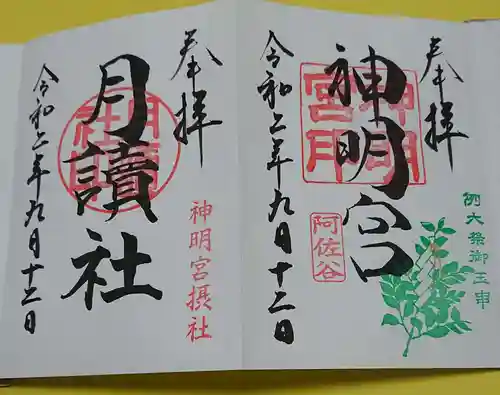 奉拝
例大祭御玉串
神明宮
神明宮印
阿佐谷
令和二年九月十二日
奉拝
神明宮摂社
月讀社
令和二年九月十二日